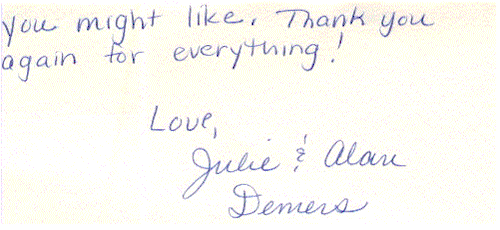 you might like. Thank you
again for everything!
Love,
Julie & Alan
Demers